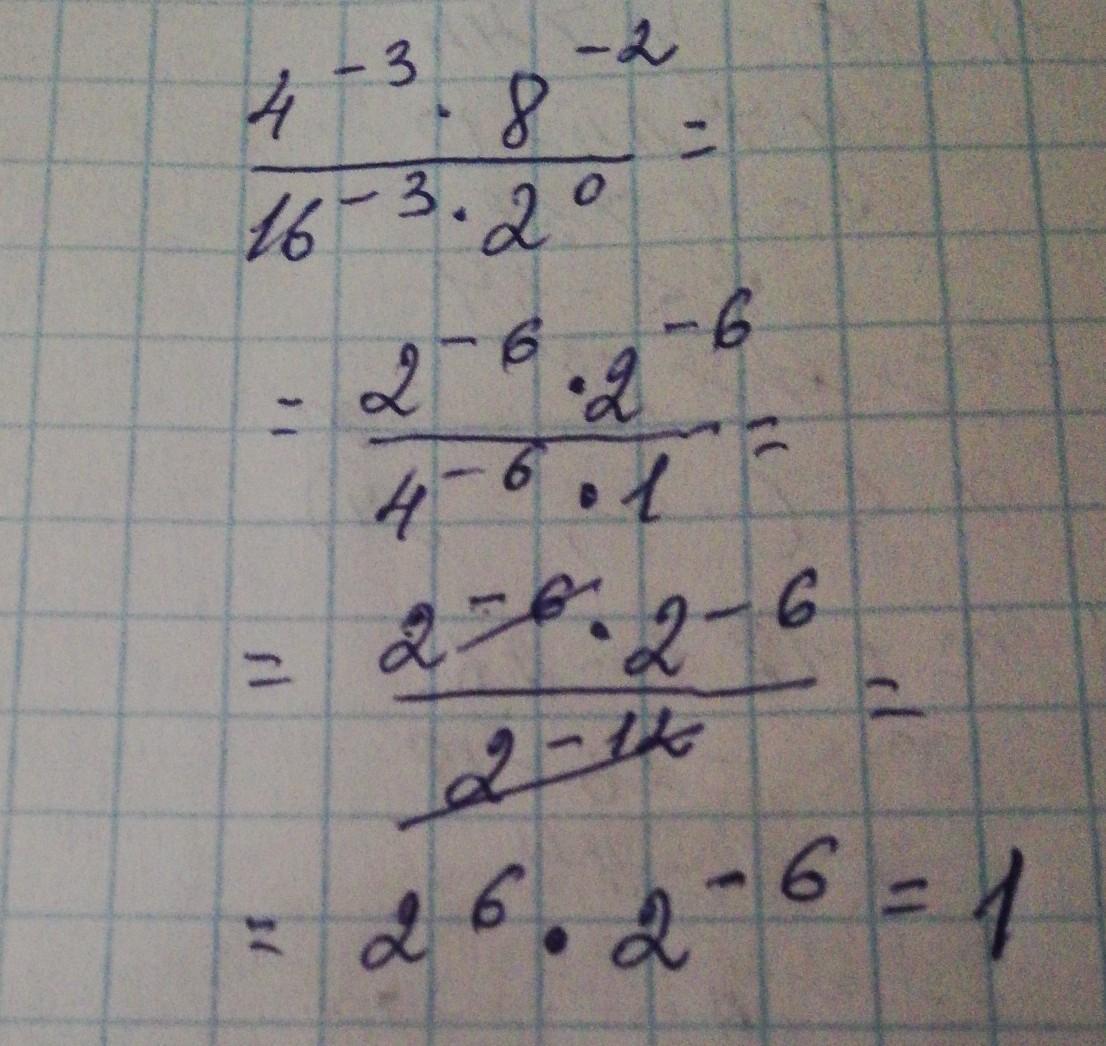 4⁻³ · 8⁻² =
16⁻³ · 2⁰
= 2⁻⁶ · 2⁻⁶ =
4⁻⁶ · 1
= 2⁻⁶ · 2⁻⁶ =
2⁻¹²
= 2⁶ · 2⁻⁶ = 1